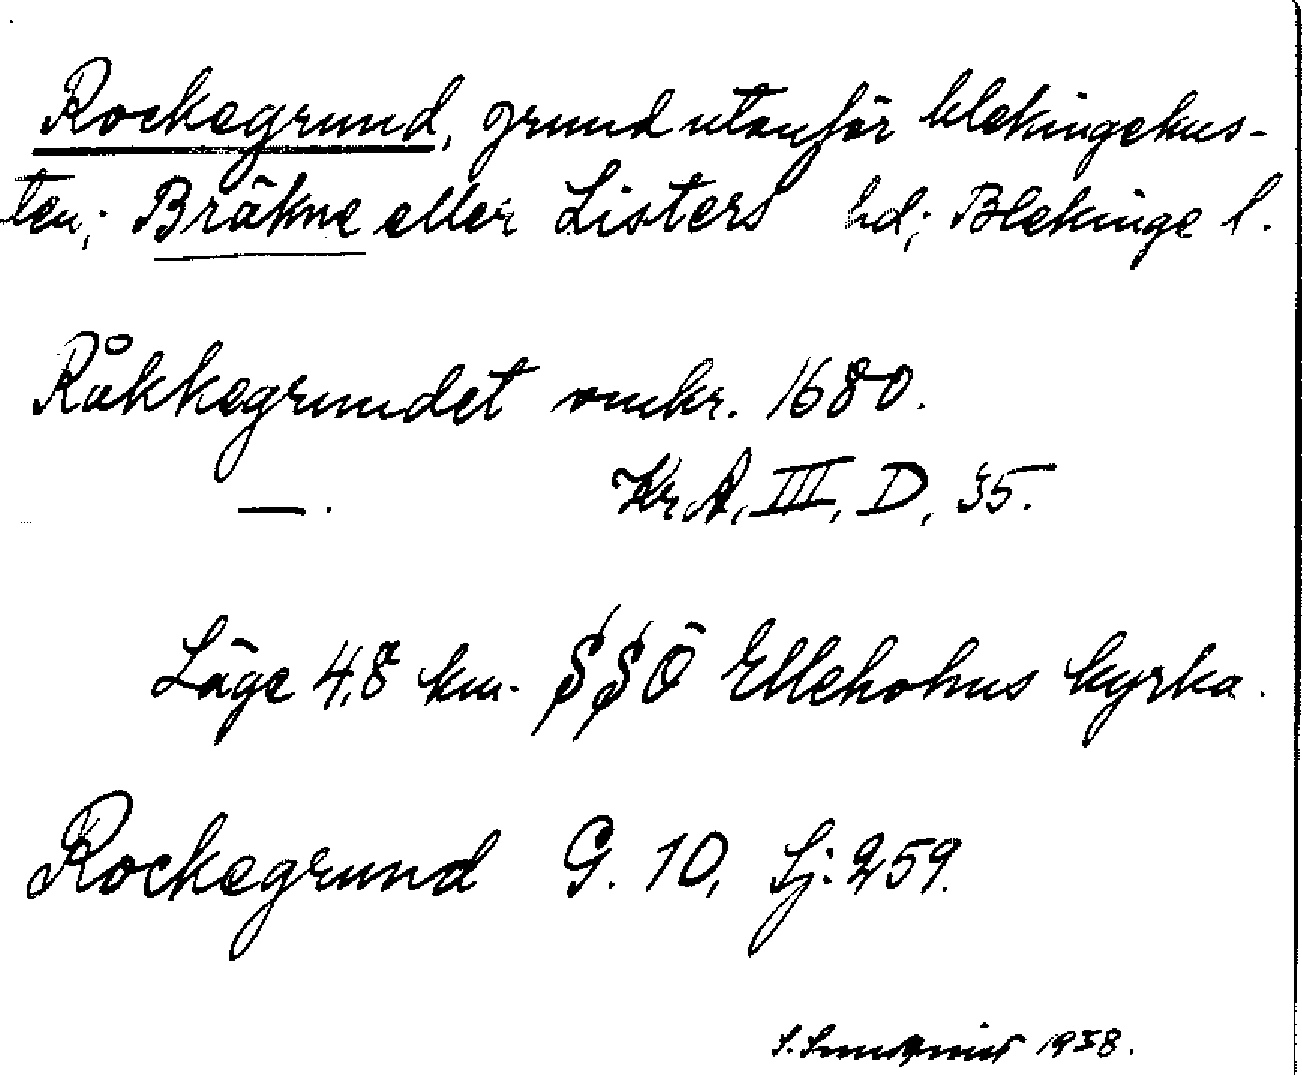 Rockegrund, grund utanför blekingekus-
ten; Bräkne eller Listers hd; Blekinge l.
Råkkegrundet omkr. 1680.
— . KrA, III, D, 35.
Läge 4,8 km. SSÖ Ellehohus kyrka.
Rockegrund G. 10, Sj: 259.
1958.